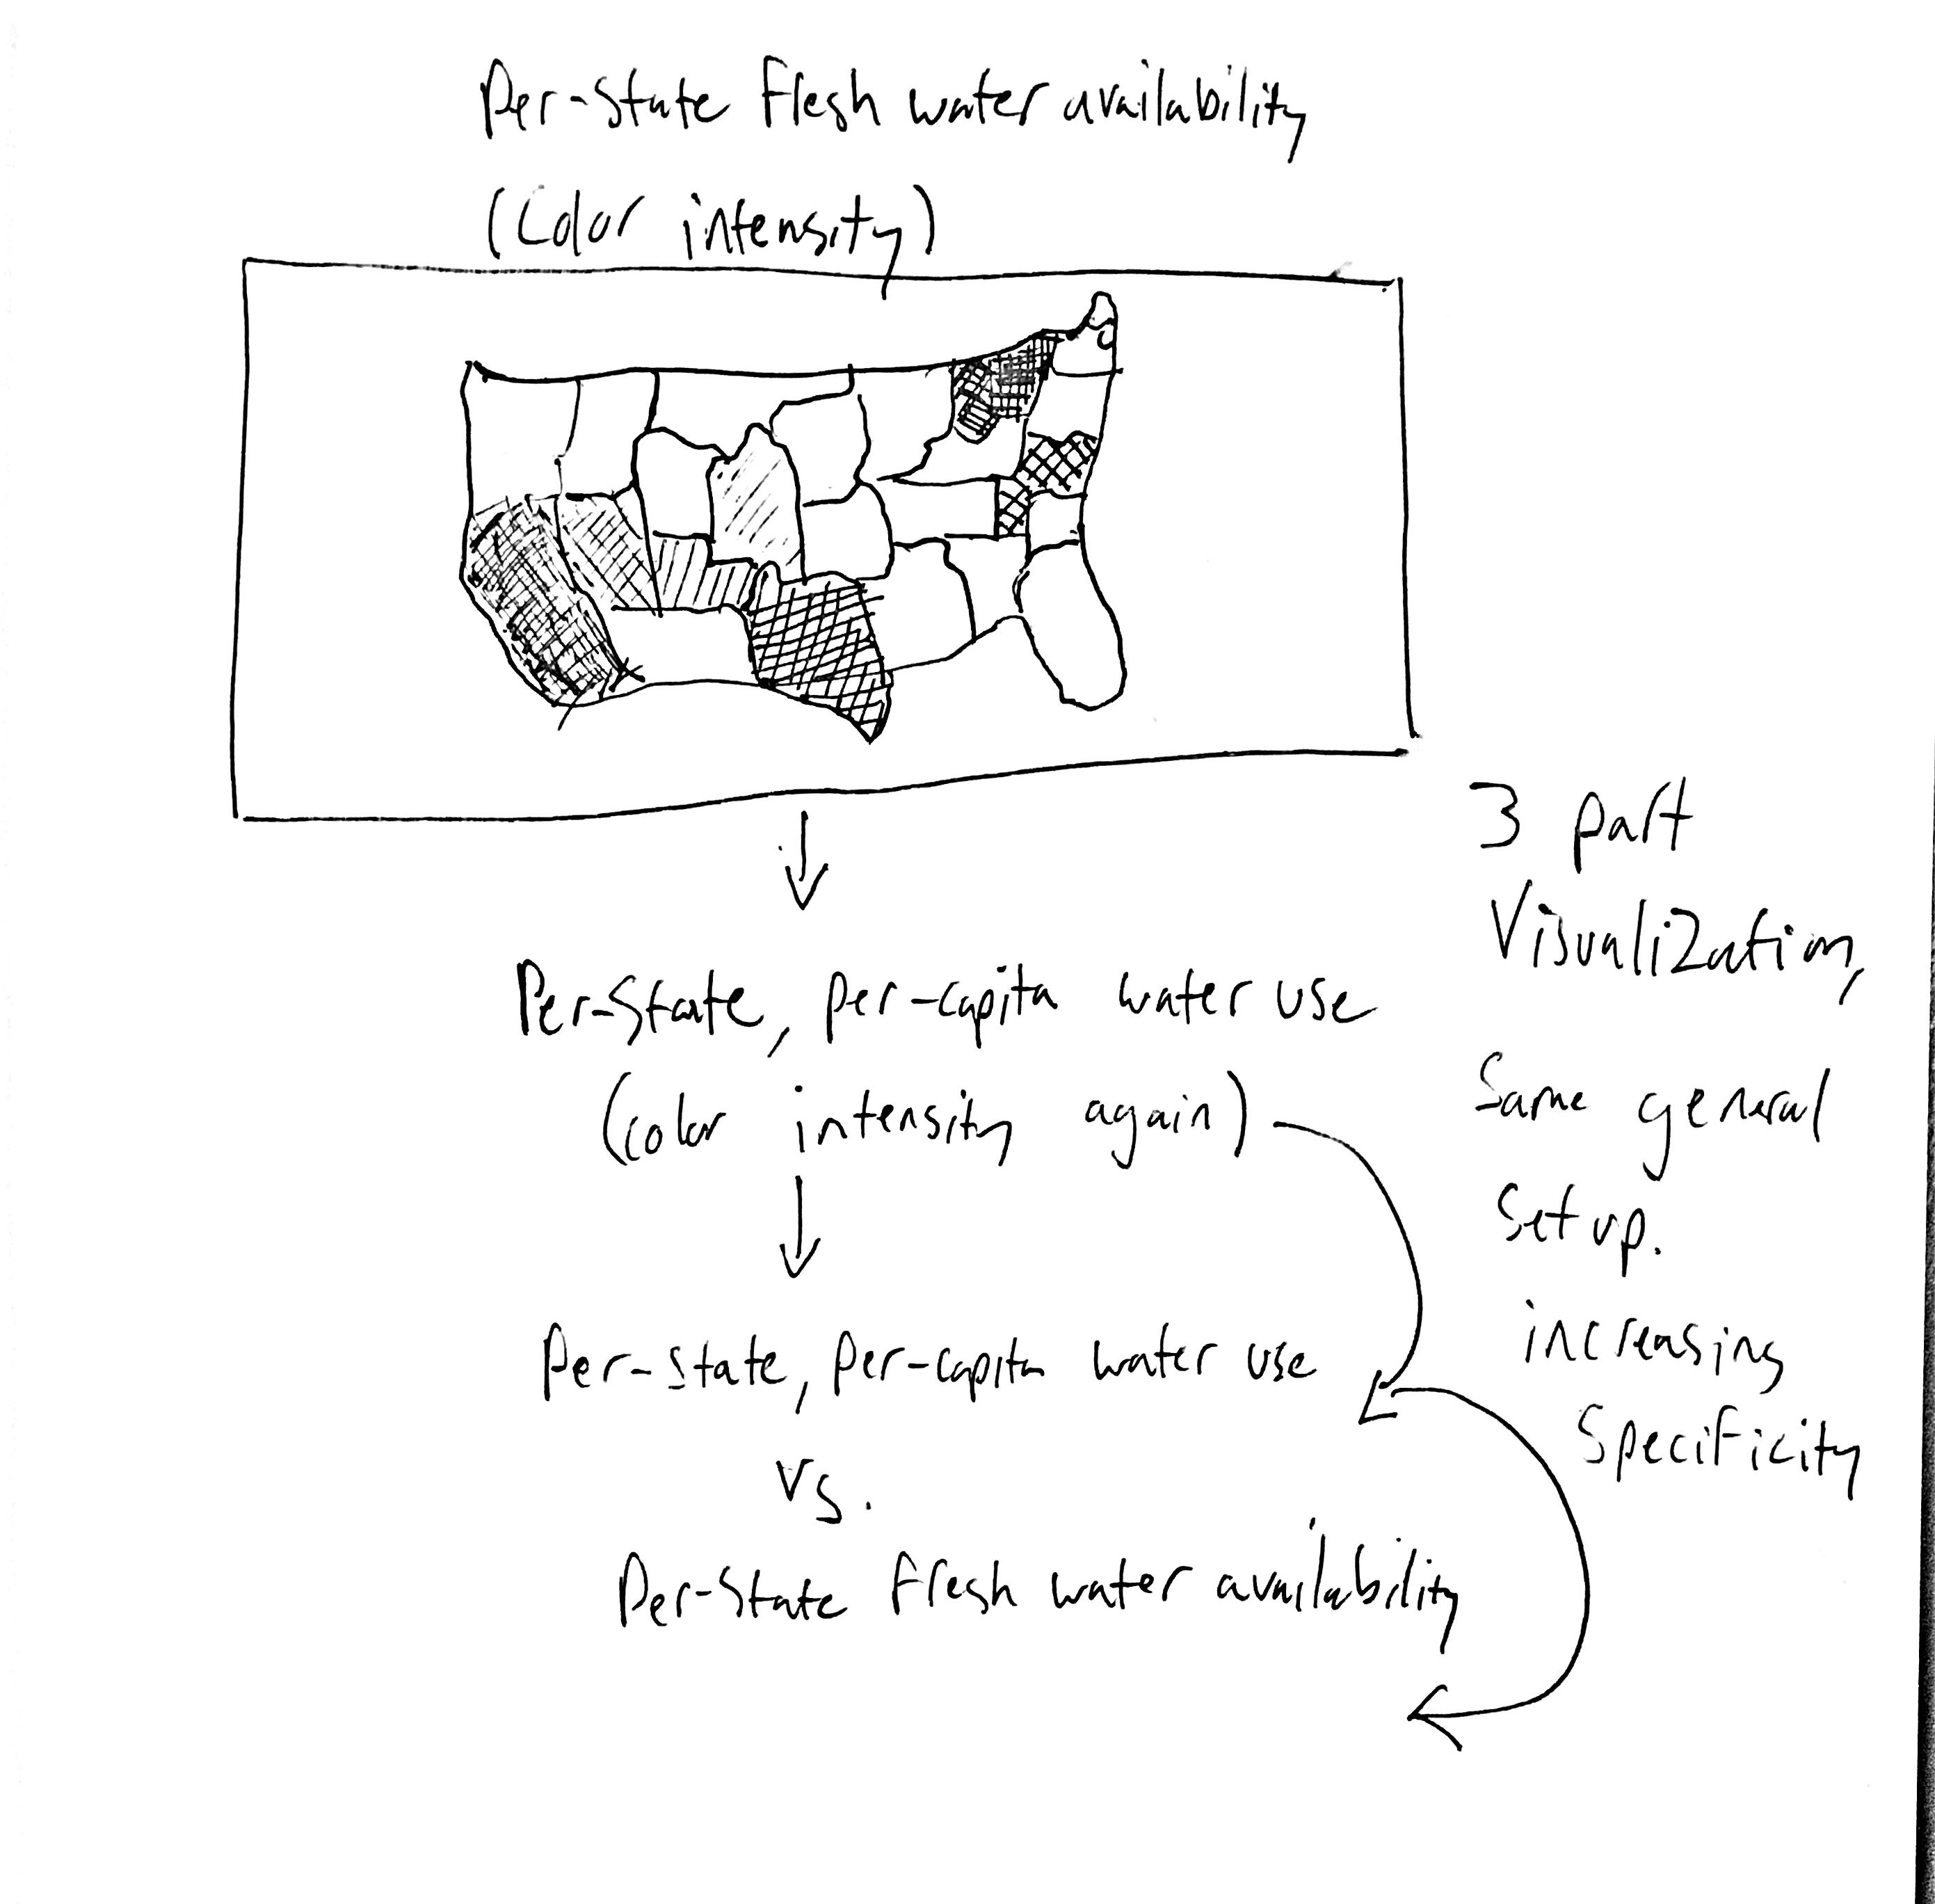 Per-State Fresh water availability
(Color intensity)
Per-State, per-capita water use
(color intensity again)
Per-State, per-capita water use
vs.
Per-State fresh water availability
3 part
Visualization,
Same general
setup.
increasing
Specificity